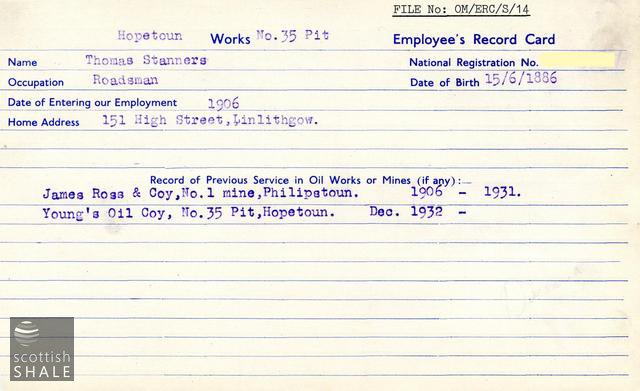 FILE No: OM/ERC/S/14
Hopetoun Works No.35 Pit Employee's Record Card
Name Thomas Stanners National Registration No.
Occupation Roadsman Date of Birth 15/6/1886
Date of Entering our Employment 1906
Home Address 151 High Street,Linlithgow.
Record of Previous Service in Oil Works or Mines (if any):—
James Ross & Coy,No.1 mine,Philipstoun. 1906 - 1931.
Young's Oil Coy, No.35 Pit,Hopetoun. Dec. 1932 -
scottish
SHALE